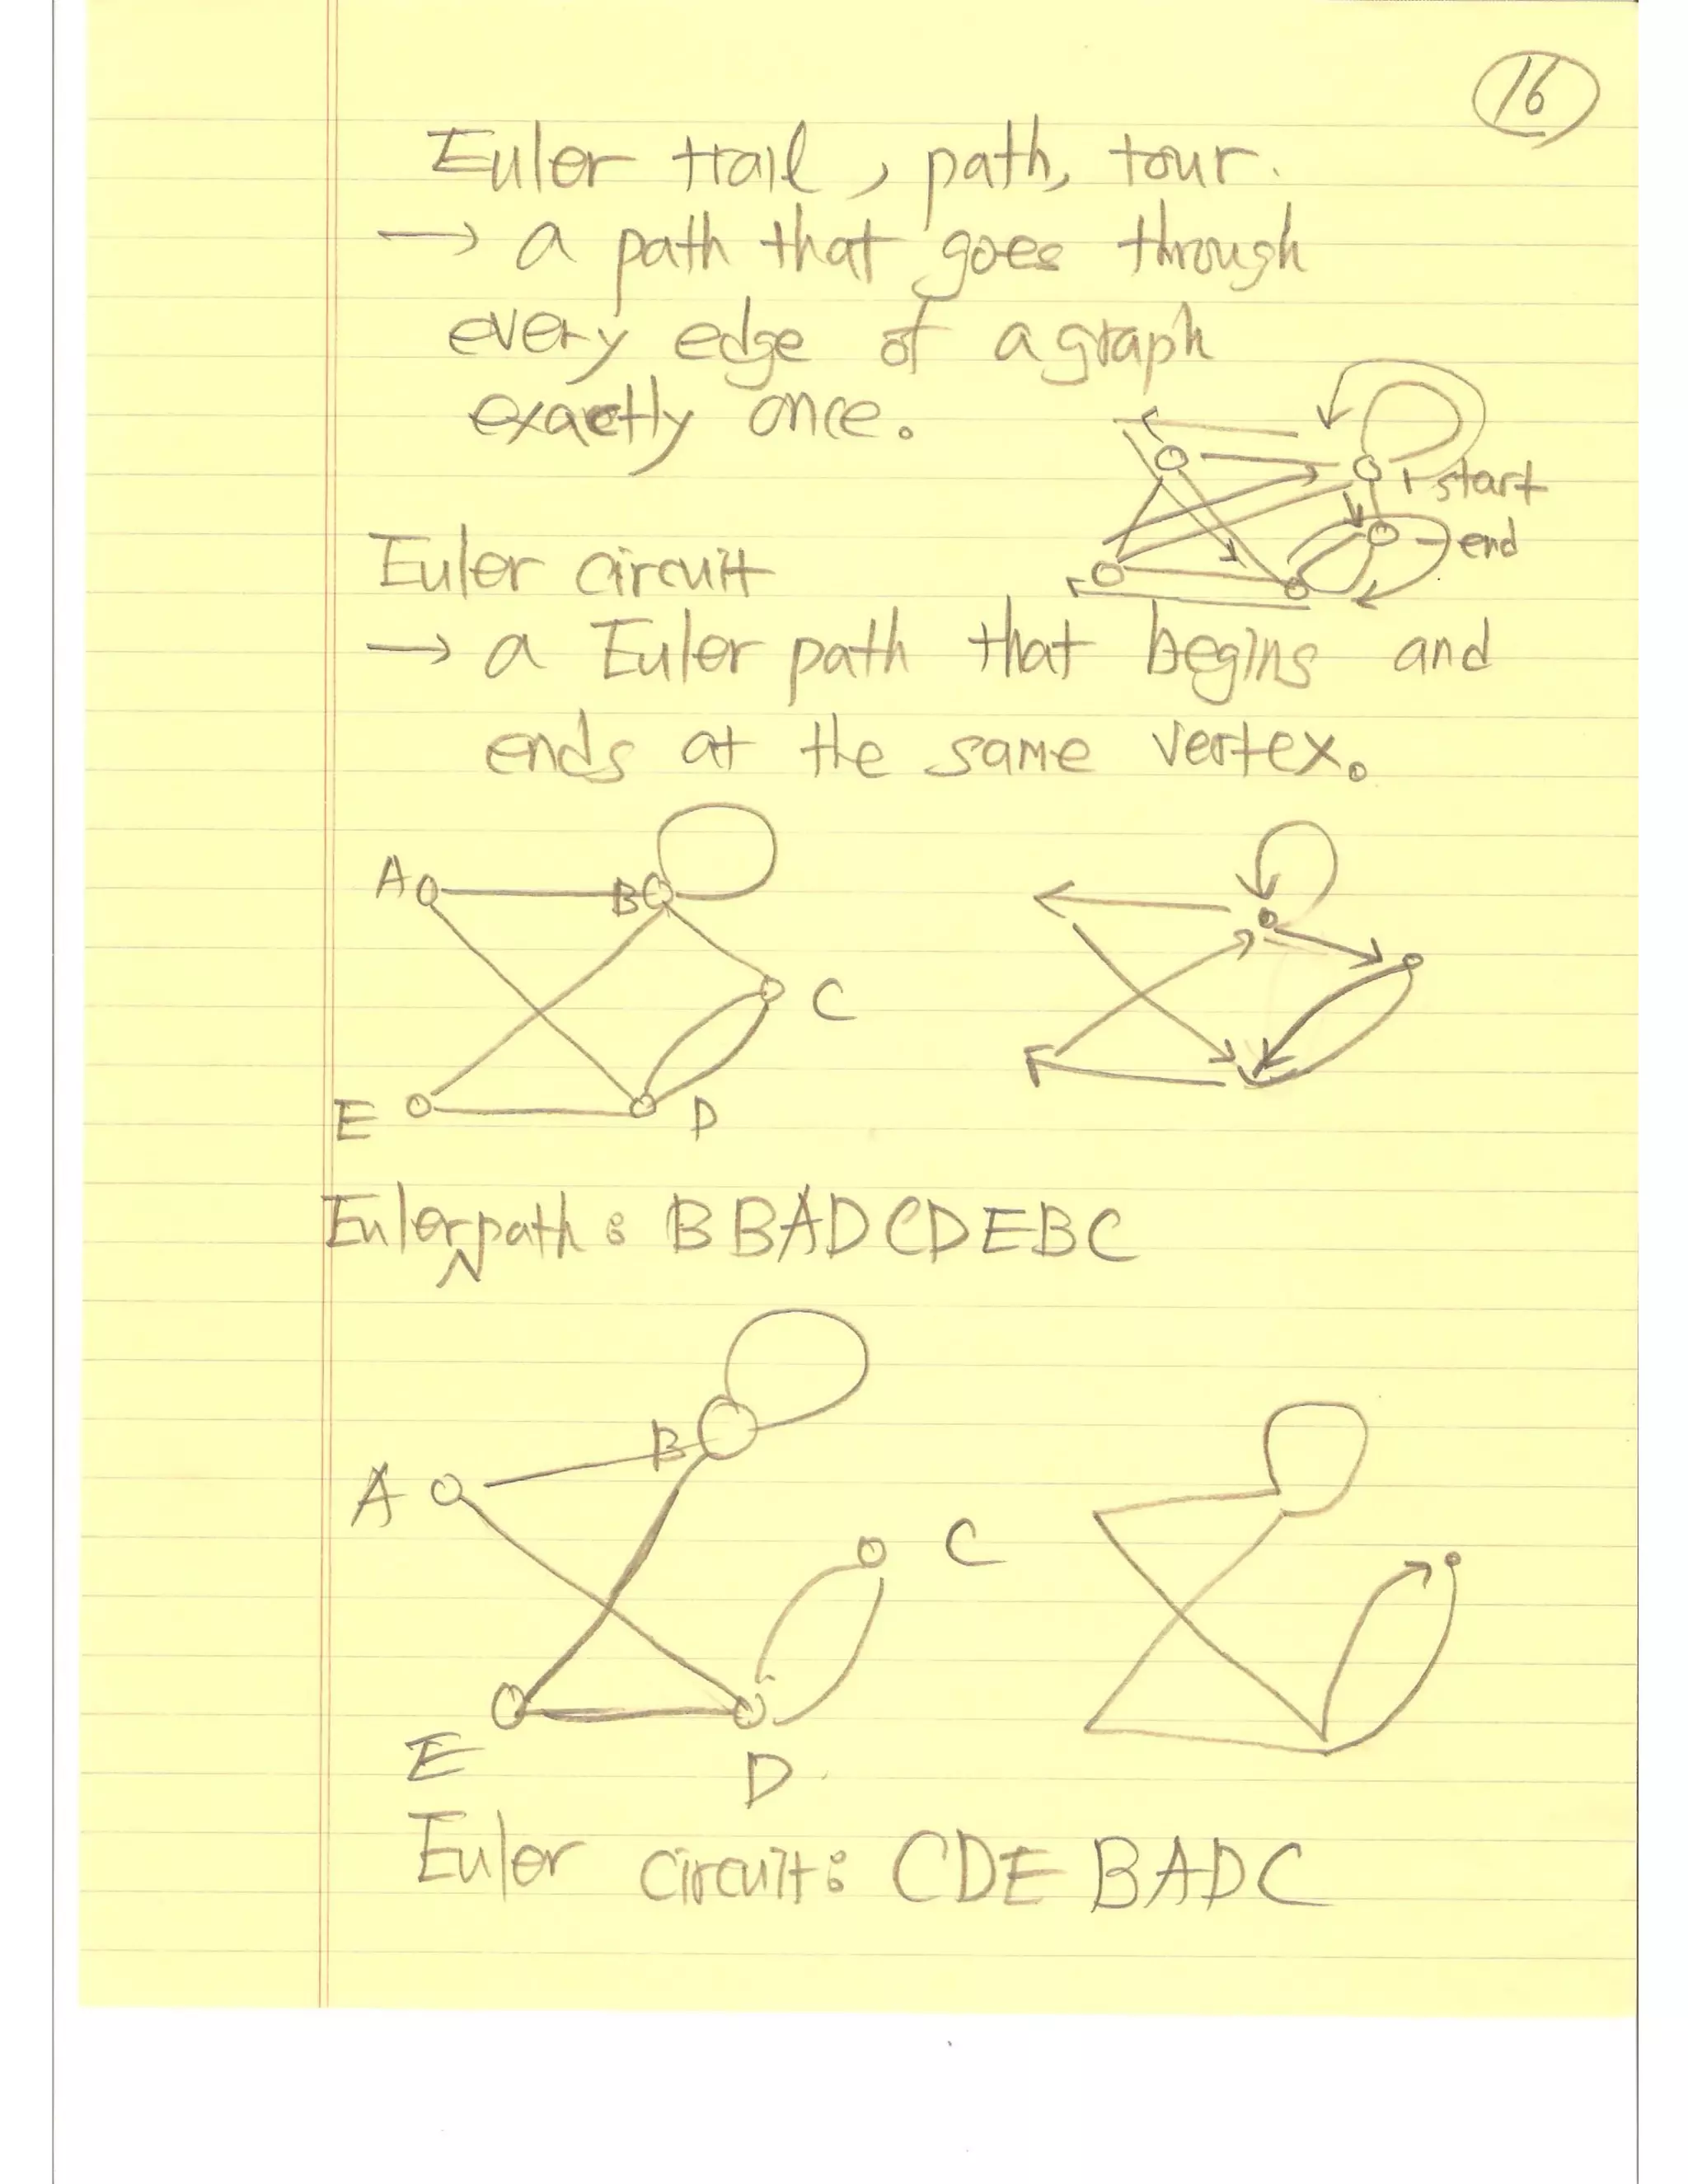 16
Euler trail, path, tour.
→ a path that goes through
every edge of a graph
exactly once.
start
end
Euler circuit
→ a Euler path that begins and
ends at the same vertex.
A B
C
E D
Euler path: BBADCDEBC
B
A
C
E
D
Euler circuit: CDEBADC